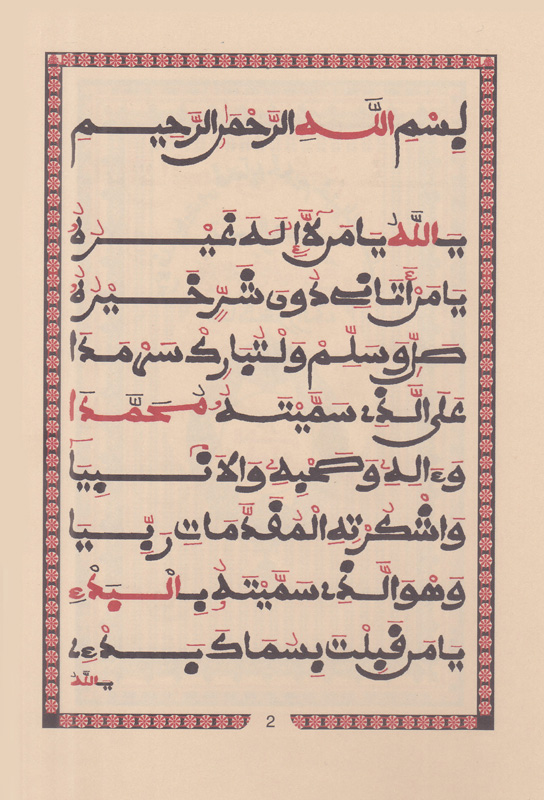 بِسْمِ اللَّهِ الرَّحْمَٰنِ الرَّحِيمِ
يَا اللَّهُ يَا مَن لَّا إِلَٰهَ غَيْرُهُ
يَا مَنْ أَتَانِي دُونَ شَرٍّ خَيْرُهُ
صَلِّ وَسَلِّمْ وَلْتُبَارِكْ سَرْمَدَا
عَلَى الَّذِي سَمَّيْتَهُ مُحَمَّدَا
وَءَالِهِ وَصَحْبِهِ وَالأَنْبِيَا
وَاشْكُرْ بِهِ الْمُقَدَّمَاتِ رَبِّيَا
وَهْوَ الَّذِي سَمَّيْتَهُ بِالْبَدْءِ
يَا مَن قَبِلْتَ بِسُمَاكَ بَدْءِي
يَا اللَّهُ
2